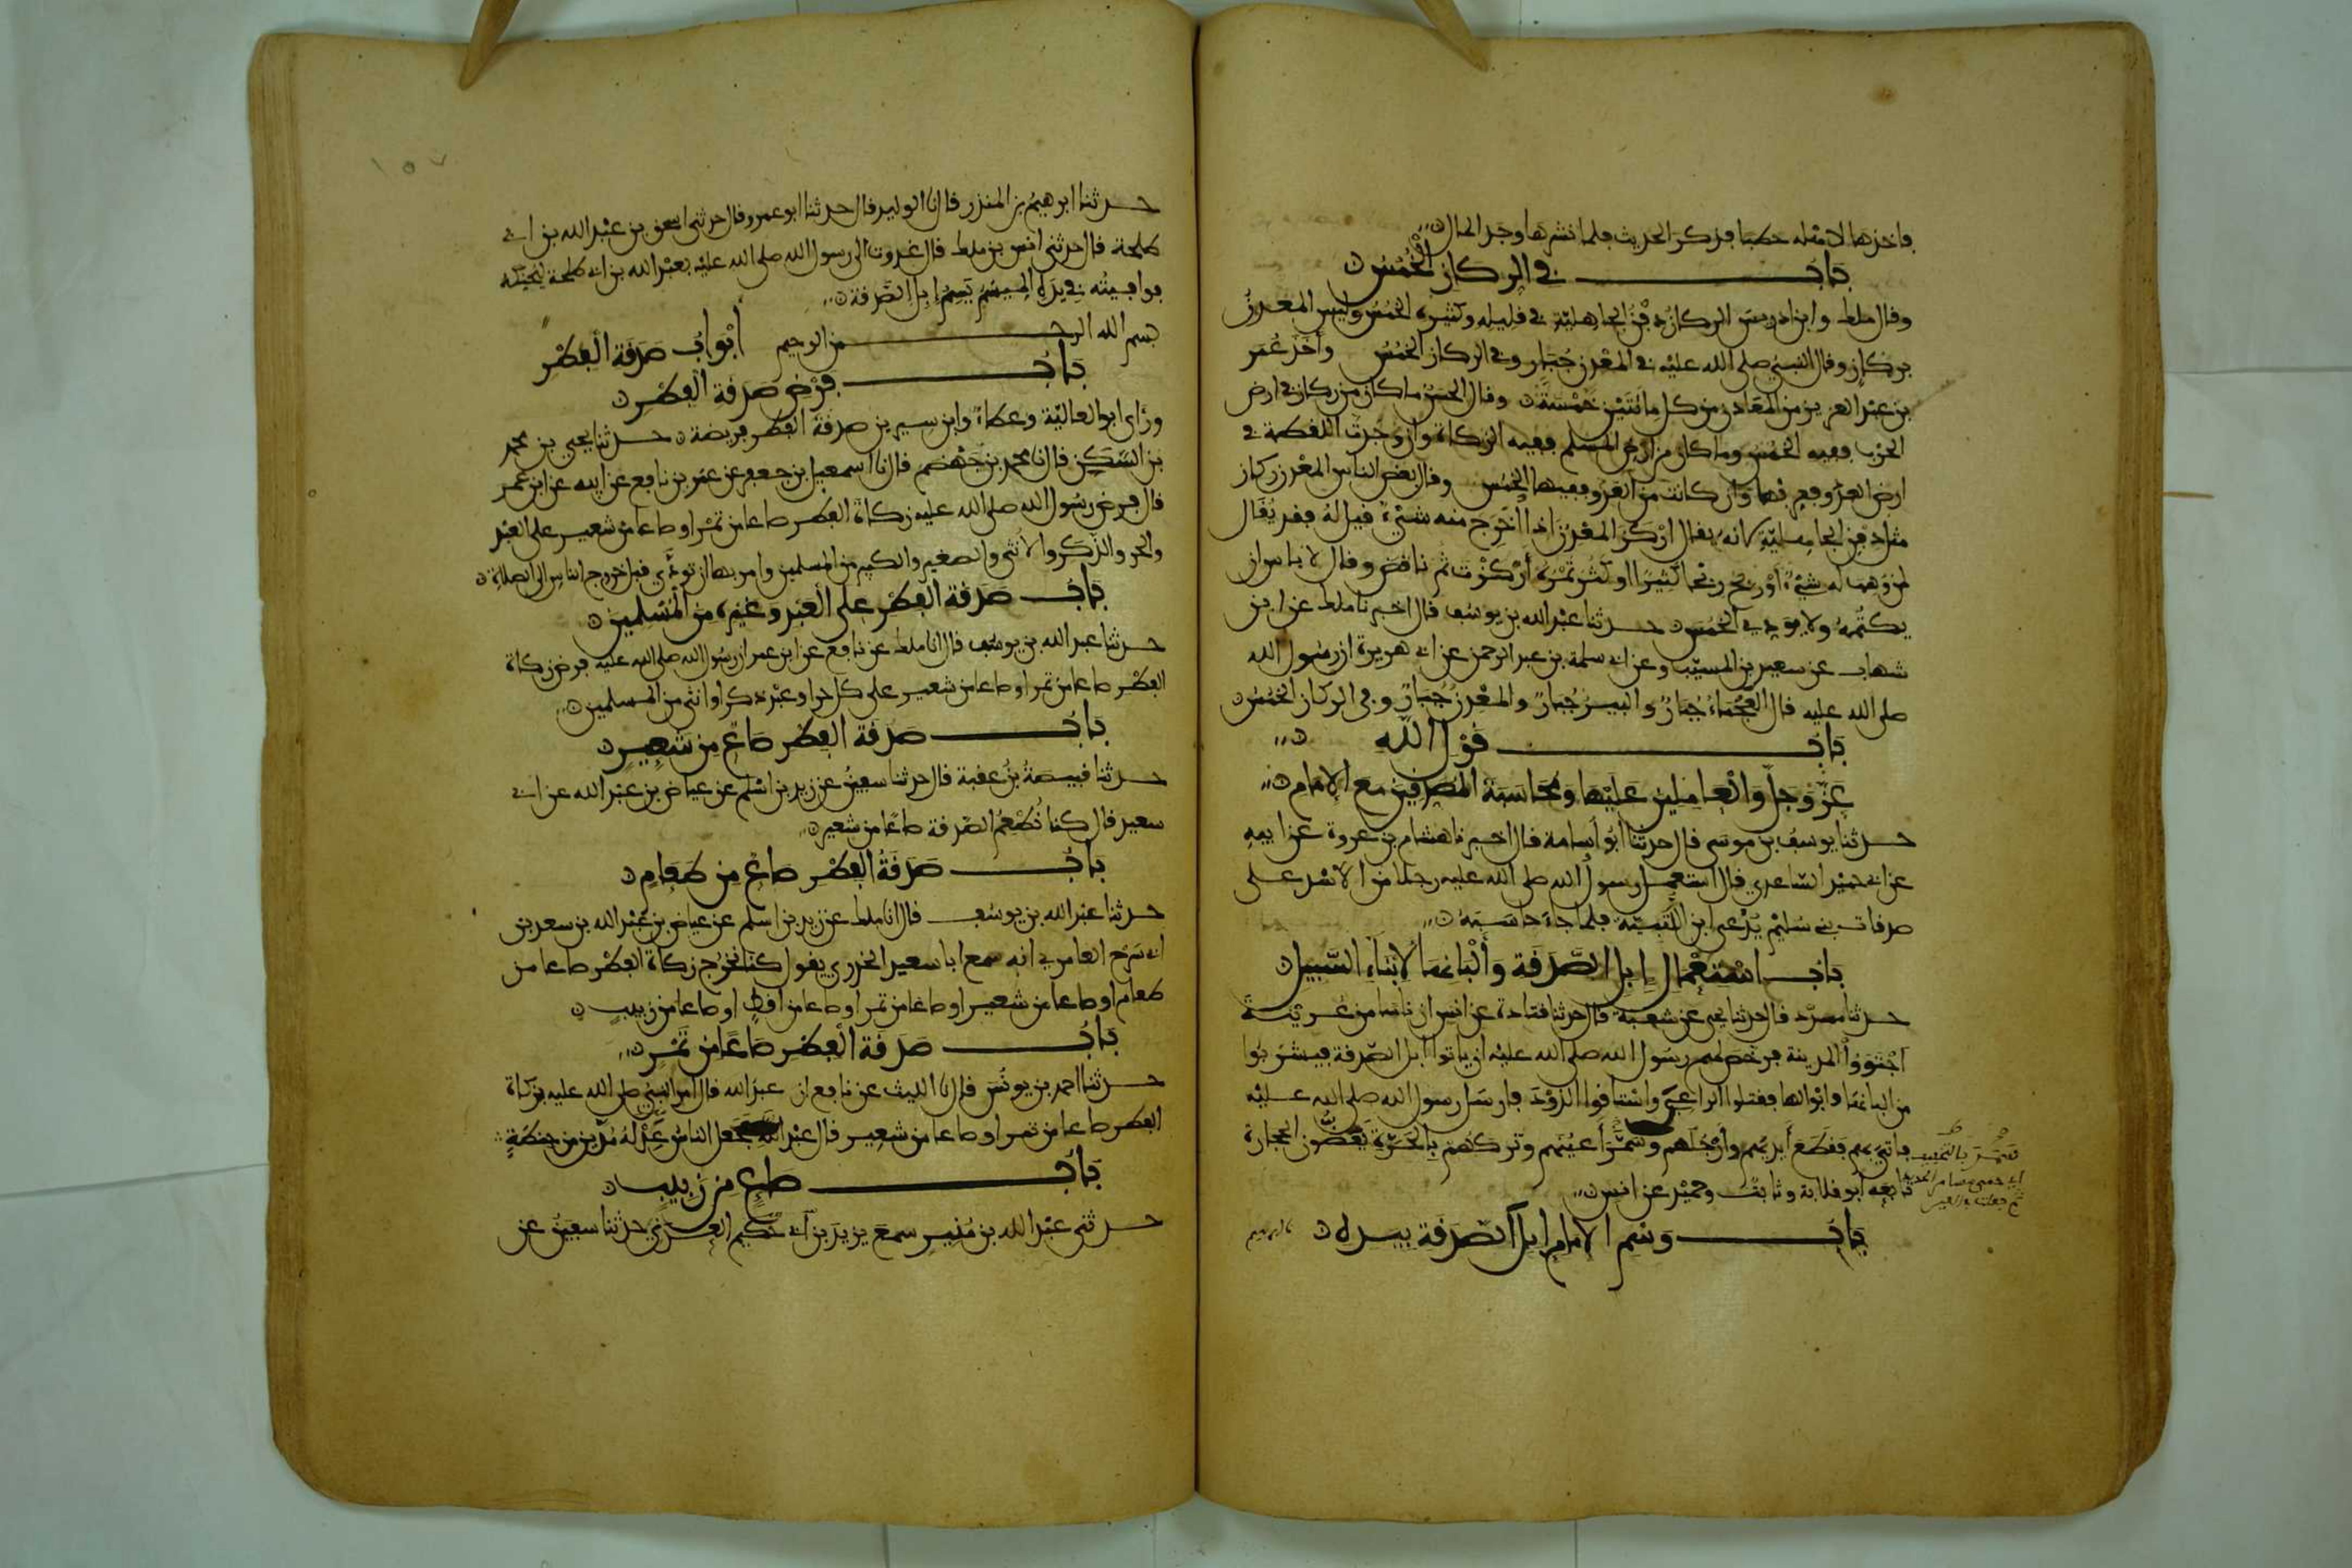 فاخذها لاهله حطبا فذكر الحديث فلما نشرها وجد المال
باب في الركاز الخمس
وقال ملك وابن ادريس الركاز دفن الجاهلية في قليله وكثيره الخمس وليس المعدن
بركاز وقال النبي صلى الله عليه في المعدن جبار وفي الركاز الخمس واخذ عمر
بن عبد العزيز من المعادن من كل مائتين خمسة وقال الحسن ما كان من ركاز في ارض
الحرب ففيه الخمس وما كان من ارض السلم ففيه الزكاة وان وجدت اللقطة في
ارض العدو فعرفها وان كانت من العدو ففيها الخمس وقال بعض الناس المعدن ركاز
مثل دفن الجاهلية لانه يقال اركز المعدن اذا اخرج منه شيء قيل له فقد يقال
لمن وهب له شيء او ربح ربحا كثيرا او كثر تمره اركزت ثم ناقض وقال لا باس ان
يكتمه ولا يودي الخمس حدثنا عبد الله بن يوسف قال اخبرنا ملك عن ابن
شهاب عن سعيد بن المسيب وعن ابي سلمة بن عبد الرحمن عن ابي هريرة ان رسول الله
صلى الله عليه قال العجماء جبار والبير جبار والمعدن جبار وفي الركاز الخمس
باب قول الله
عز وجل والعاملين عليها ومحاسبة المصدقين مع الامام
حدثنا يوسف بن موسى قال حدثنا ابو اسامة قال اخبرنا هشام بن عروة عن ابيه
عن ابي حميد الساعدي قال استعمل رسول الله صلى الله عليه رجلا من الاسد على
صدقات بني سليم يدعى ابن اللتبية فلما جاء حاسبه
باب استعمال ابل الصدقة والبانها لابناء السبيل
حدثنا مسدد قال حدثنا يحيى عن شعبة قال حدثنا قتادة عن انس ان ناسا من عرينة
اجتووا المدينة فرخص لهم رسول الله صلى الله عليه ان ياتوا ابل الصدقة فيشربوا
من البانها وابوالها فقتلوا الراعي واستاقوا الذود فارسل رسول الله صلى الله عليه
فاتي بهم فقطع ايديهم وارجلهم وسمر اعينهم وتركهم بالحرة يعضون الحجارة
تابعه ابو قلابة وثابت وحميد عن انس
باب وسم الامام ابل الصدقة بيده
حدثنا ابرهيم بن المنذر قال نا الوليد قال حدثنا ابو عمرو قال حدثني اسحق بن عبد الله بن ابي
طلحة قال حدثني انس بن ملك قال غدوت الى رسول الله صلى الله عليه بعبد الله بن ابي طلحة ليحنكه
فوافيته في يده الميسم يسم ابل الصدقة
بسم الله الرحمن الرحيم ابواب صدقة الفطر
باب فرض صدقة الفطر
وراى ابو العالية وعطاء وابن سيرين صدقة الفطر فريضة حدثنا يحيى بن محمد
بن السكن قال نا محمد بن جهضم قال نا اسمعيل بن جعفر عن عمر بن نافع عن ابيه عن ابن عمر
قال فرض رسول الله صلى الله عليه زكاة الفطر صاعا من تمر او صاعا من شعير على العبد
والحر والذكر والانثى والصغير والكبير من المسلمين وامر بها ان تودى قبل خروج الناس الى الصلاة
باب صدقة الفطر على العبد وغيره من المسلمين
حدثنا عبد الله بن يوسف قال انا ملك عن نافع عن ابن عمر ان رسول الله صلى الله عليه فرض زكاة
الفطر صاعا من تمر او صاعا من شعير على كل حر او عبد ذكر او انثى من المسلمين
باب صدقة الفطر صاع من شعير
حدثنا قبيصة بن عقبة قال حدثنا سفين عن زيد بن اسلم عن عياض بن عبد الله عن ابي
سعيد قال كنا نطعم الصدقة صاعا من شعير
باب صدقة الفطر صاع من طعام
حدثنا عبد الله بن يوسف قال انا ملك عن زيد بن اسلم عن عياض بن عبد الله بن سعد بن
ابي سرح العامري انه سمع ابا سعيد الخدري يقول كنا نخرج زكاة الفطر صاعا من
طعام او صاعا من شعير او صاعا من تمر او صاعا من اقط او صاعا من زبيب
باب صدقة الفطر صاعا من تمر
حدثنا احمد بن يونس قال نا الليث عن نافع ان عبد الله قال امر النبي صلى الله عليه بزكاة
الفطر صاعا من تمر او صاعا من شعير قال عبد الله فجعل الناس عدله مدين من حنطة
باب صاع من زبيب
حدثني عبد الله بن منير سمع يزيد بن ابي حكيم العدني حدثنا سفين عن